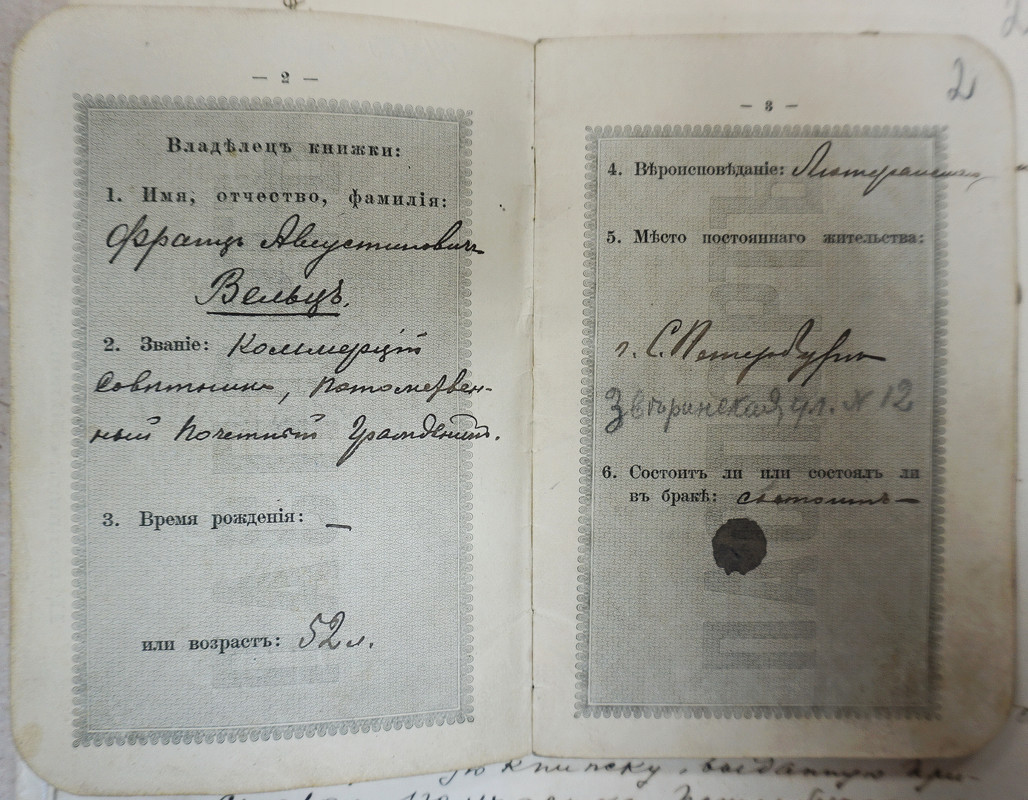 — 2 —
Владѣлецъ книжки:
1. Имя, отчество, фамилія:
Францъ Августиновичъ
Вельцъ.
2. Званіе: Коммерціи
Совѣтникъ, Потомствен-
ный Почетный Гражданинъ.
3. Время рожденія: —
или возрастъ: 52 л.
— 3 —
2
4. Вѣроисповѣданіе: Лютеранскаго
5. Мѣсто постояннаго жительства:
г. С. Петербургъ
Звѣринская, ул. № 12
6. Состоитъ ли или состоялъ ли
въ бракѣ: состоитъ —
книжку, выданную